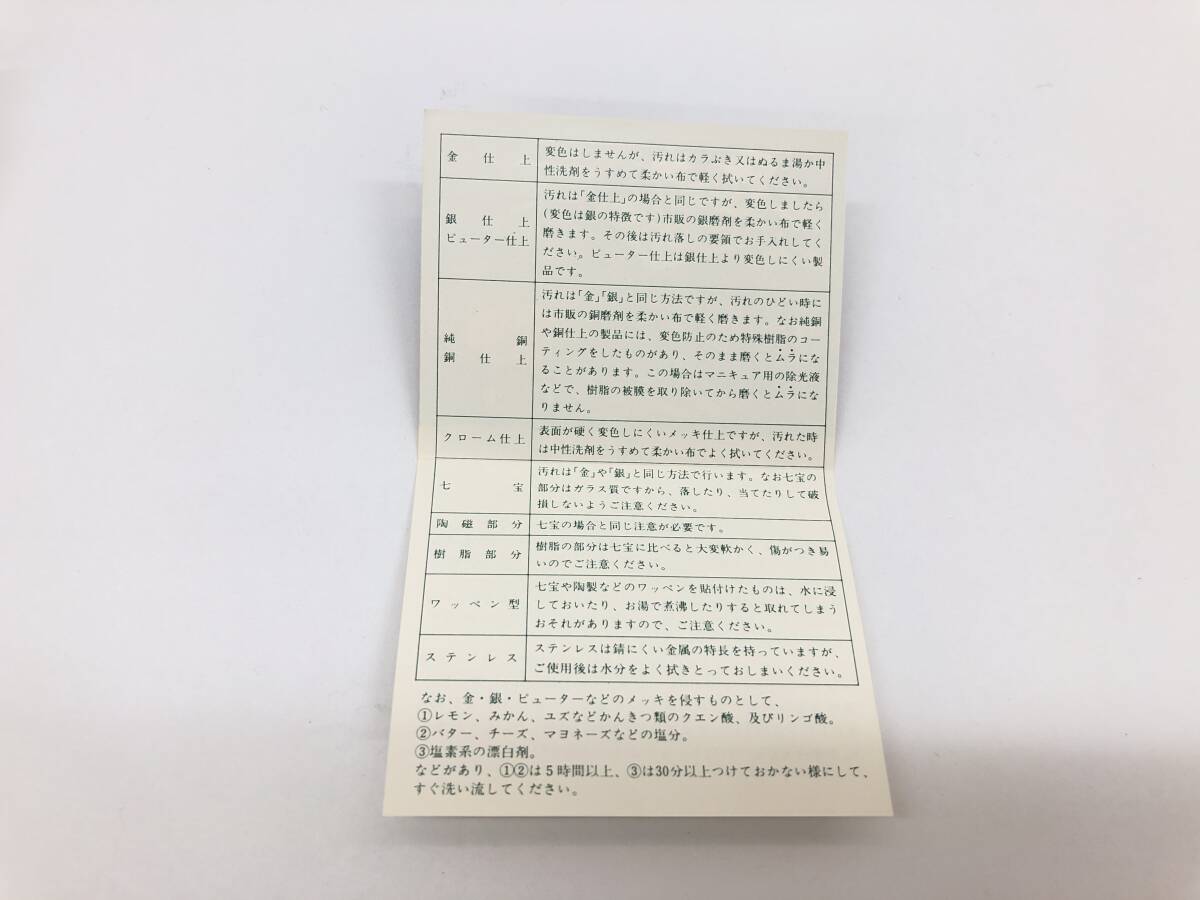 金仕上
変色はしませんが、汚れはカラぶき又はぬるま湯か中
性洗剤をうすめて柔かい布で軽く拭いてください。
銀仕上
ピューター仕上
汚れは「金仕上」の場合と同じですが、変色しましたら
(変色は銀の特徴です)市販の銀磨剤を柔かい布で軽く
磨きます。その後は汚れ落しの要領でお手入れしてく
ださい。ピューター仕上は銀仕上より変色しにくい製
品です。
純銅
銅仕上
汚れは「金」「銀」と同じ方法ですが、汚れのひどい時に
は市販の銅磨剤を柔かい布で軽く磨きます。なお純銅
や銅仕上の製品には、変色防止のため特殊樹脂のコー
ティングをしたものがあり、そのまま磨くとムラにな
ることがあります。この場合はマニキュア用の除光液
などで、樹脂の被膜を取り除いてから磨くとムラにな
りません。
クローム仕上
表面が硬く変色しにくいメッキ仕上ですが、汚れた時
は中性洗剤をうすめて柔かい布でよく拭いてください。
七宝
汚れは「金」や「銀」と同じ方法で行います。なお七宝の
部分はガラス質ですから、落したり、当てたりして破
損しないようご注意ください。
陶磁部分
七宝の場合と同じ注意が必要です。
樹脂部分
樹脂の部分は七宝に比べると大変軟かく、傷がつき易
いのでご注意ください。
ワッペン型
七宝や陶製などのワッペンを貼付けたものは、水に浸
しておいたり、お湯で煮沸したりすると取れてしまう
おそれがありますので、ご注意ください。
ステンレス
ステンレスは錆にくい金属の特長を持っていますが、
ご使用後は水分をよく拭きとっておしまいください。
なお、金・銀・ピューターなどのメッキを侵すものとして、
①レモン、みかん、ユズなどかんきつ類のクエン酸、及びリンゴ酸。
②バター、チーズ、マヨネーズなどの塩分。
③塩素系の漂白剤。
などがあり、①②は5時間以上、③は30分以上つけておかない様にして、
すぐ洗い流してください。